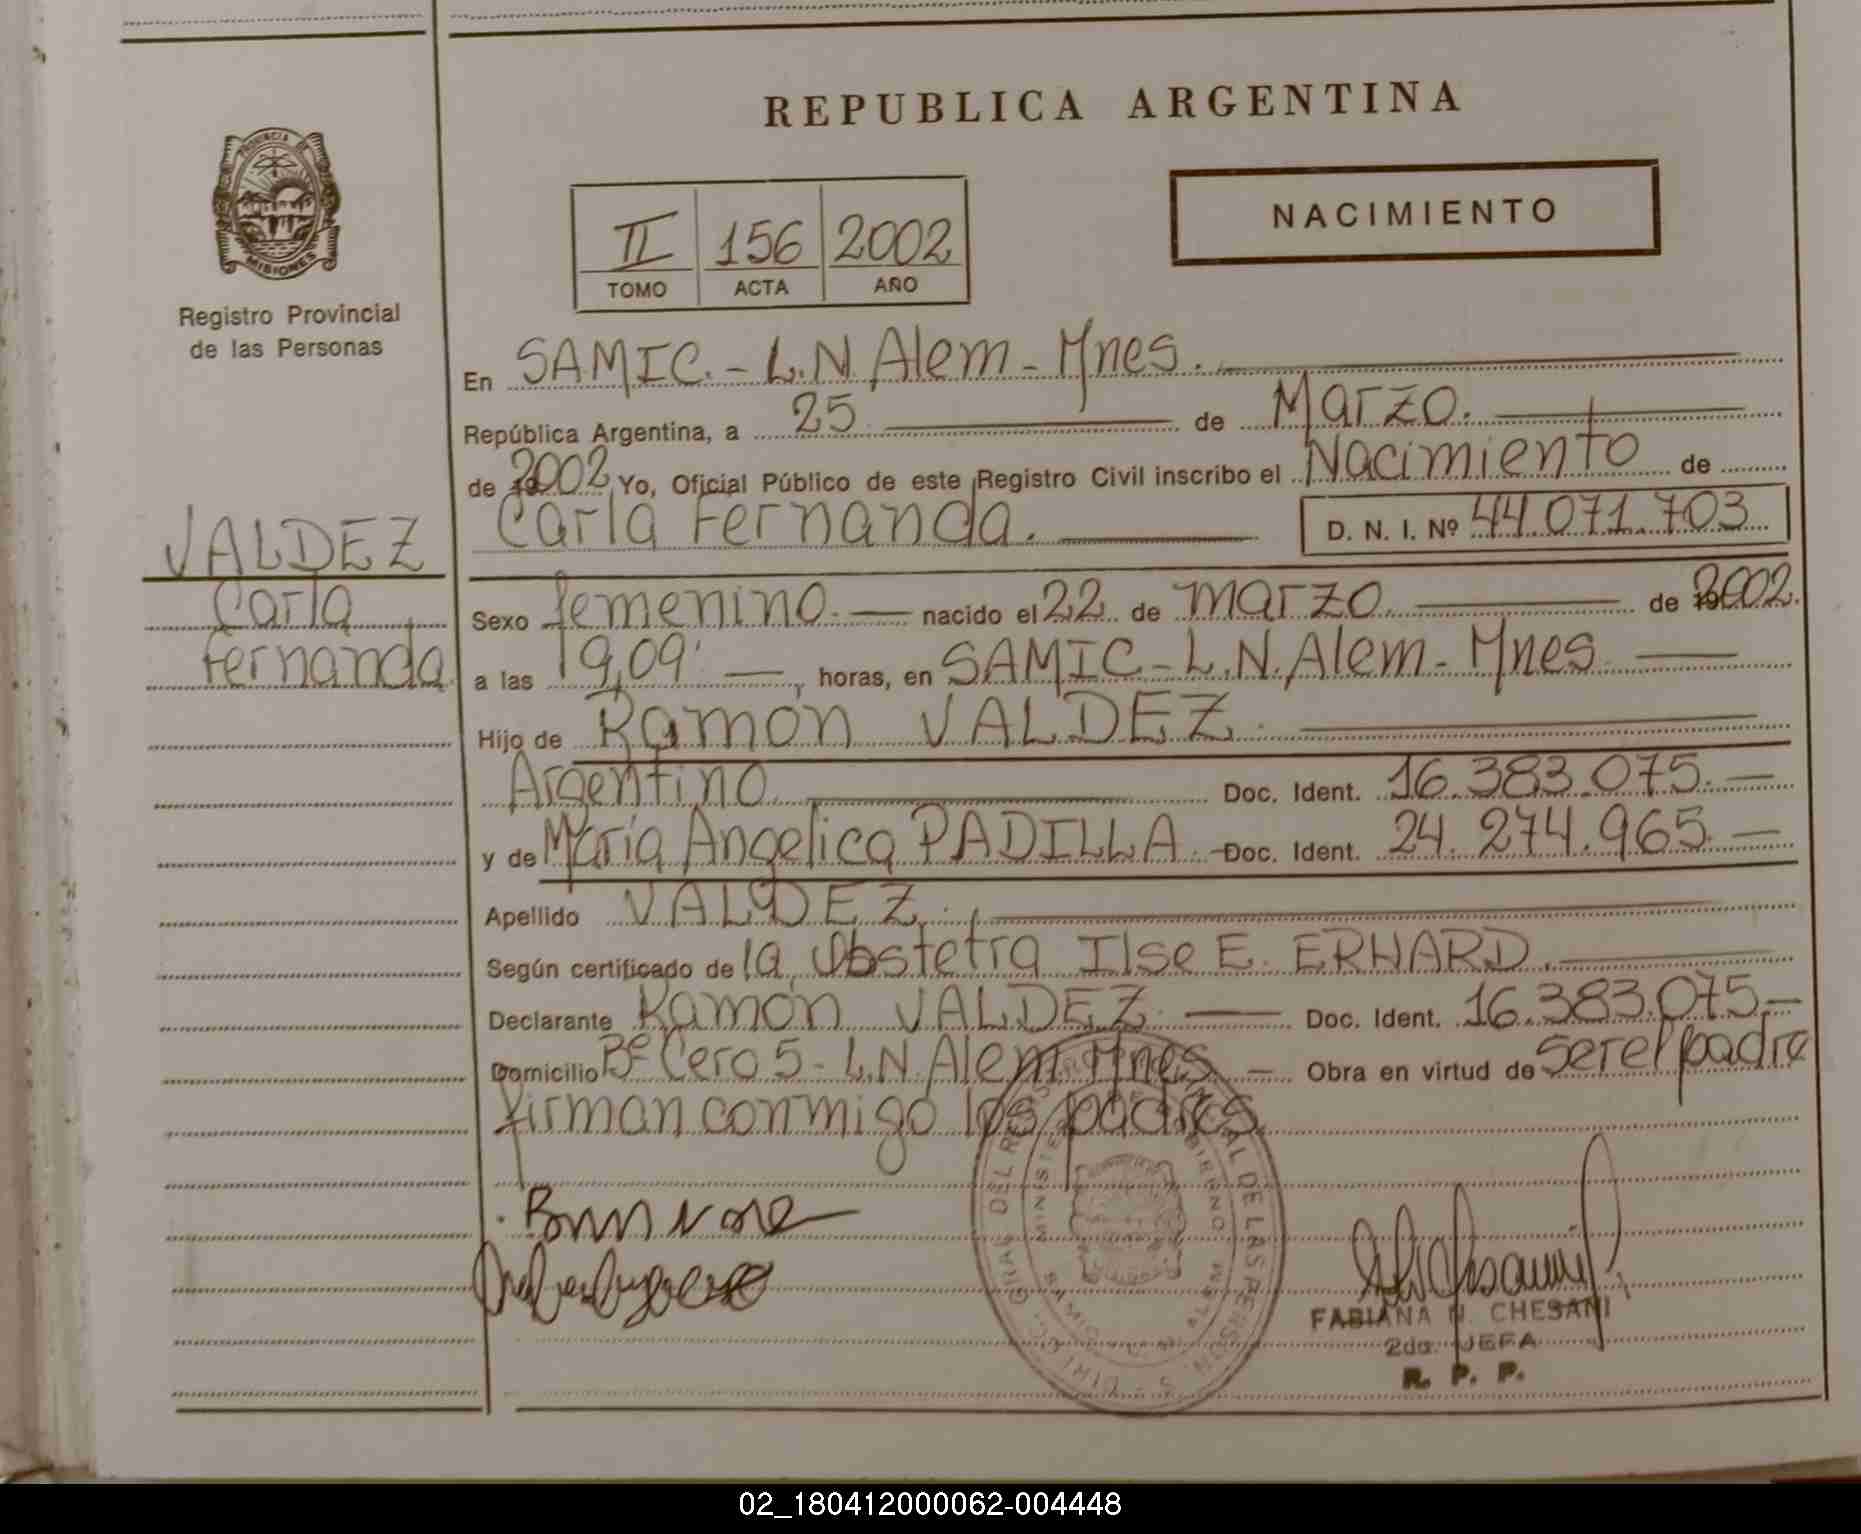 REPUBLICA ARGENTINA
PROVINCIA DE
MISIONES
Registro Provincial
de las Personas
II 156 2002
TOMO ACTA AÑO
NACIMIENTO
En SAMIC.- L.N. Alem - Mnes.
República Argentina, a 25 de Marzo.
de 2002 Yo, Oficial Público de este Registro Civil inscribo el Nacimiento de
Carla Fernanda. D. N. I. Nº 44.071.703
VALDEZ
Carla
Fernanda
Sexo femenino. nacido el 22 de marzo de 2002.
a las 19,09' , horas, en SAMIC - L.N. Alem - Mnes
Hijo de Ramón VALDEZ.
Argentino Doc. Ident. 16.383.075.-
y de María Angelica PADILLA.- Doc. Ident. 24.274.965.-
Apellido VALDEZ.
Según certificado de la Obstetra Ilse E. ERHARD.
Declarante Ramón VALDEZ Doc. Ident. 16.383.075-
Domicilio Bº Cero 5 - L.N. Alem Mnes - Obra en virtud de ser el padre
firman conmigo los padres.
FABIANA N. CHESANI
2da. JEFA
R. P. P.
02_180412000062-004448